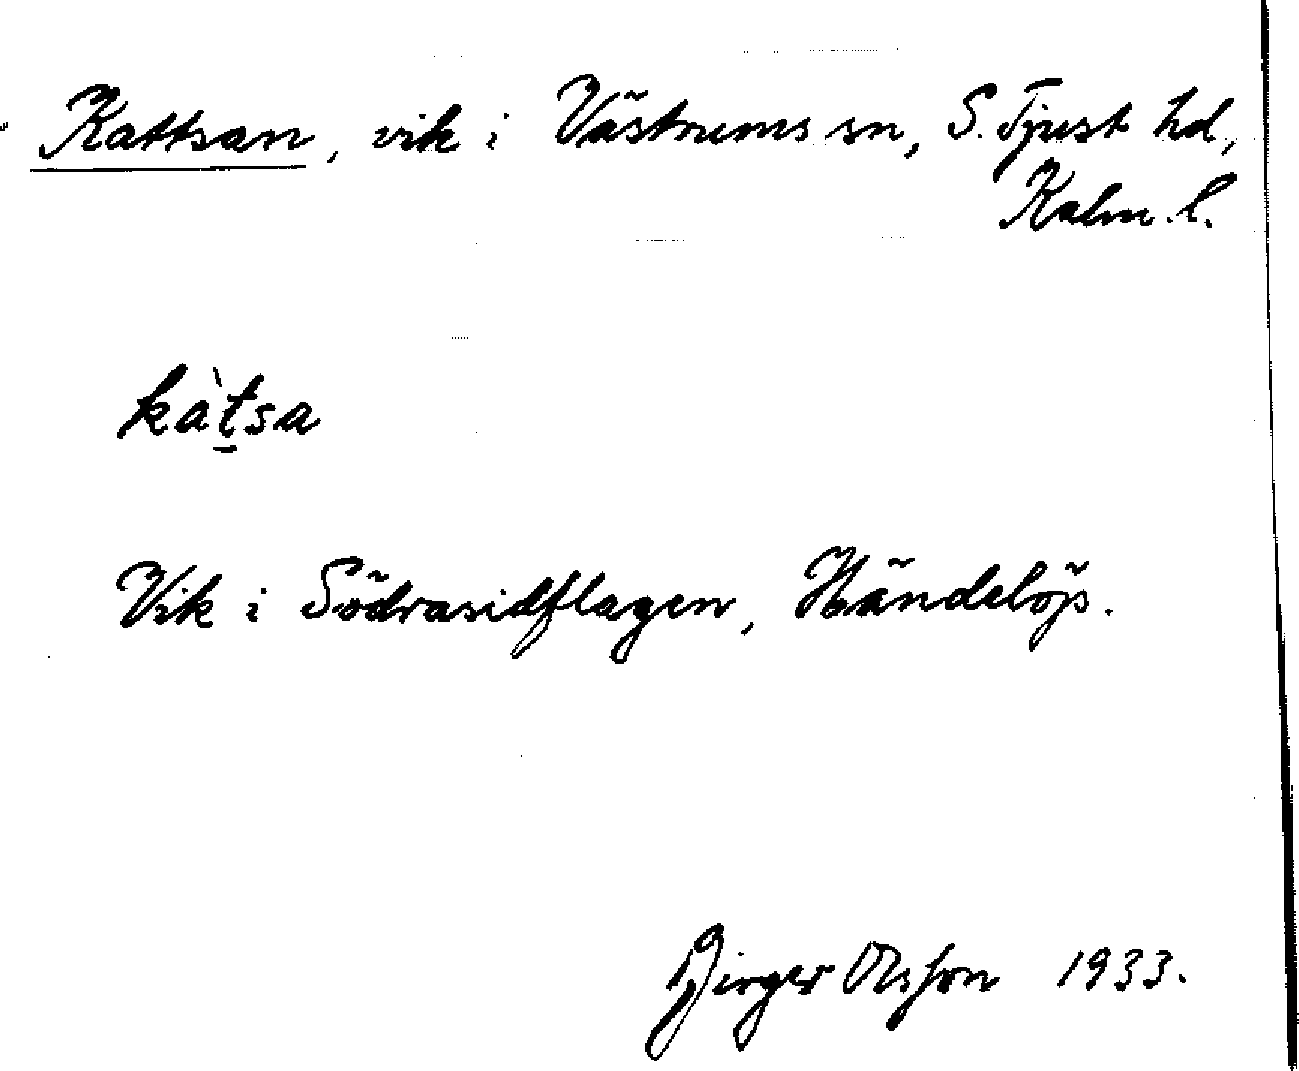 Kattsan, vik i Västrums sn, S. Tjust hd,
Kalm. l.
kàt̠sa
Vik i Södrasidflagen, Händelöp.
Birger Olsson 1933.